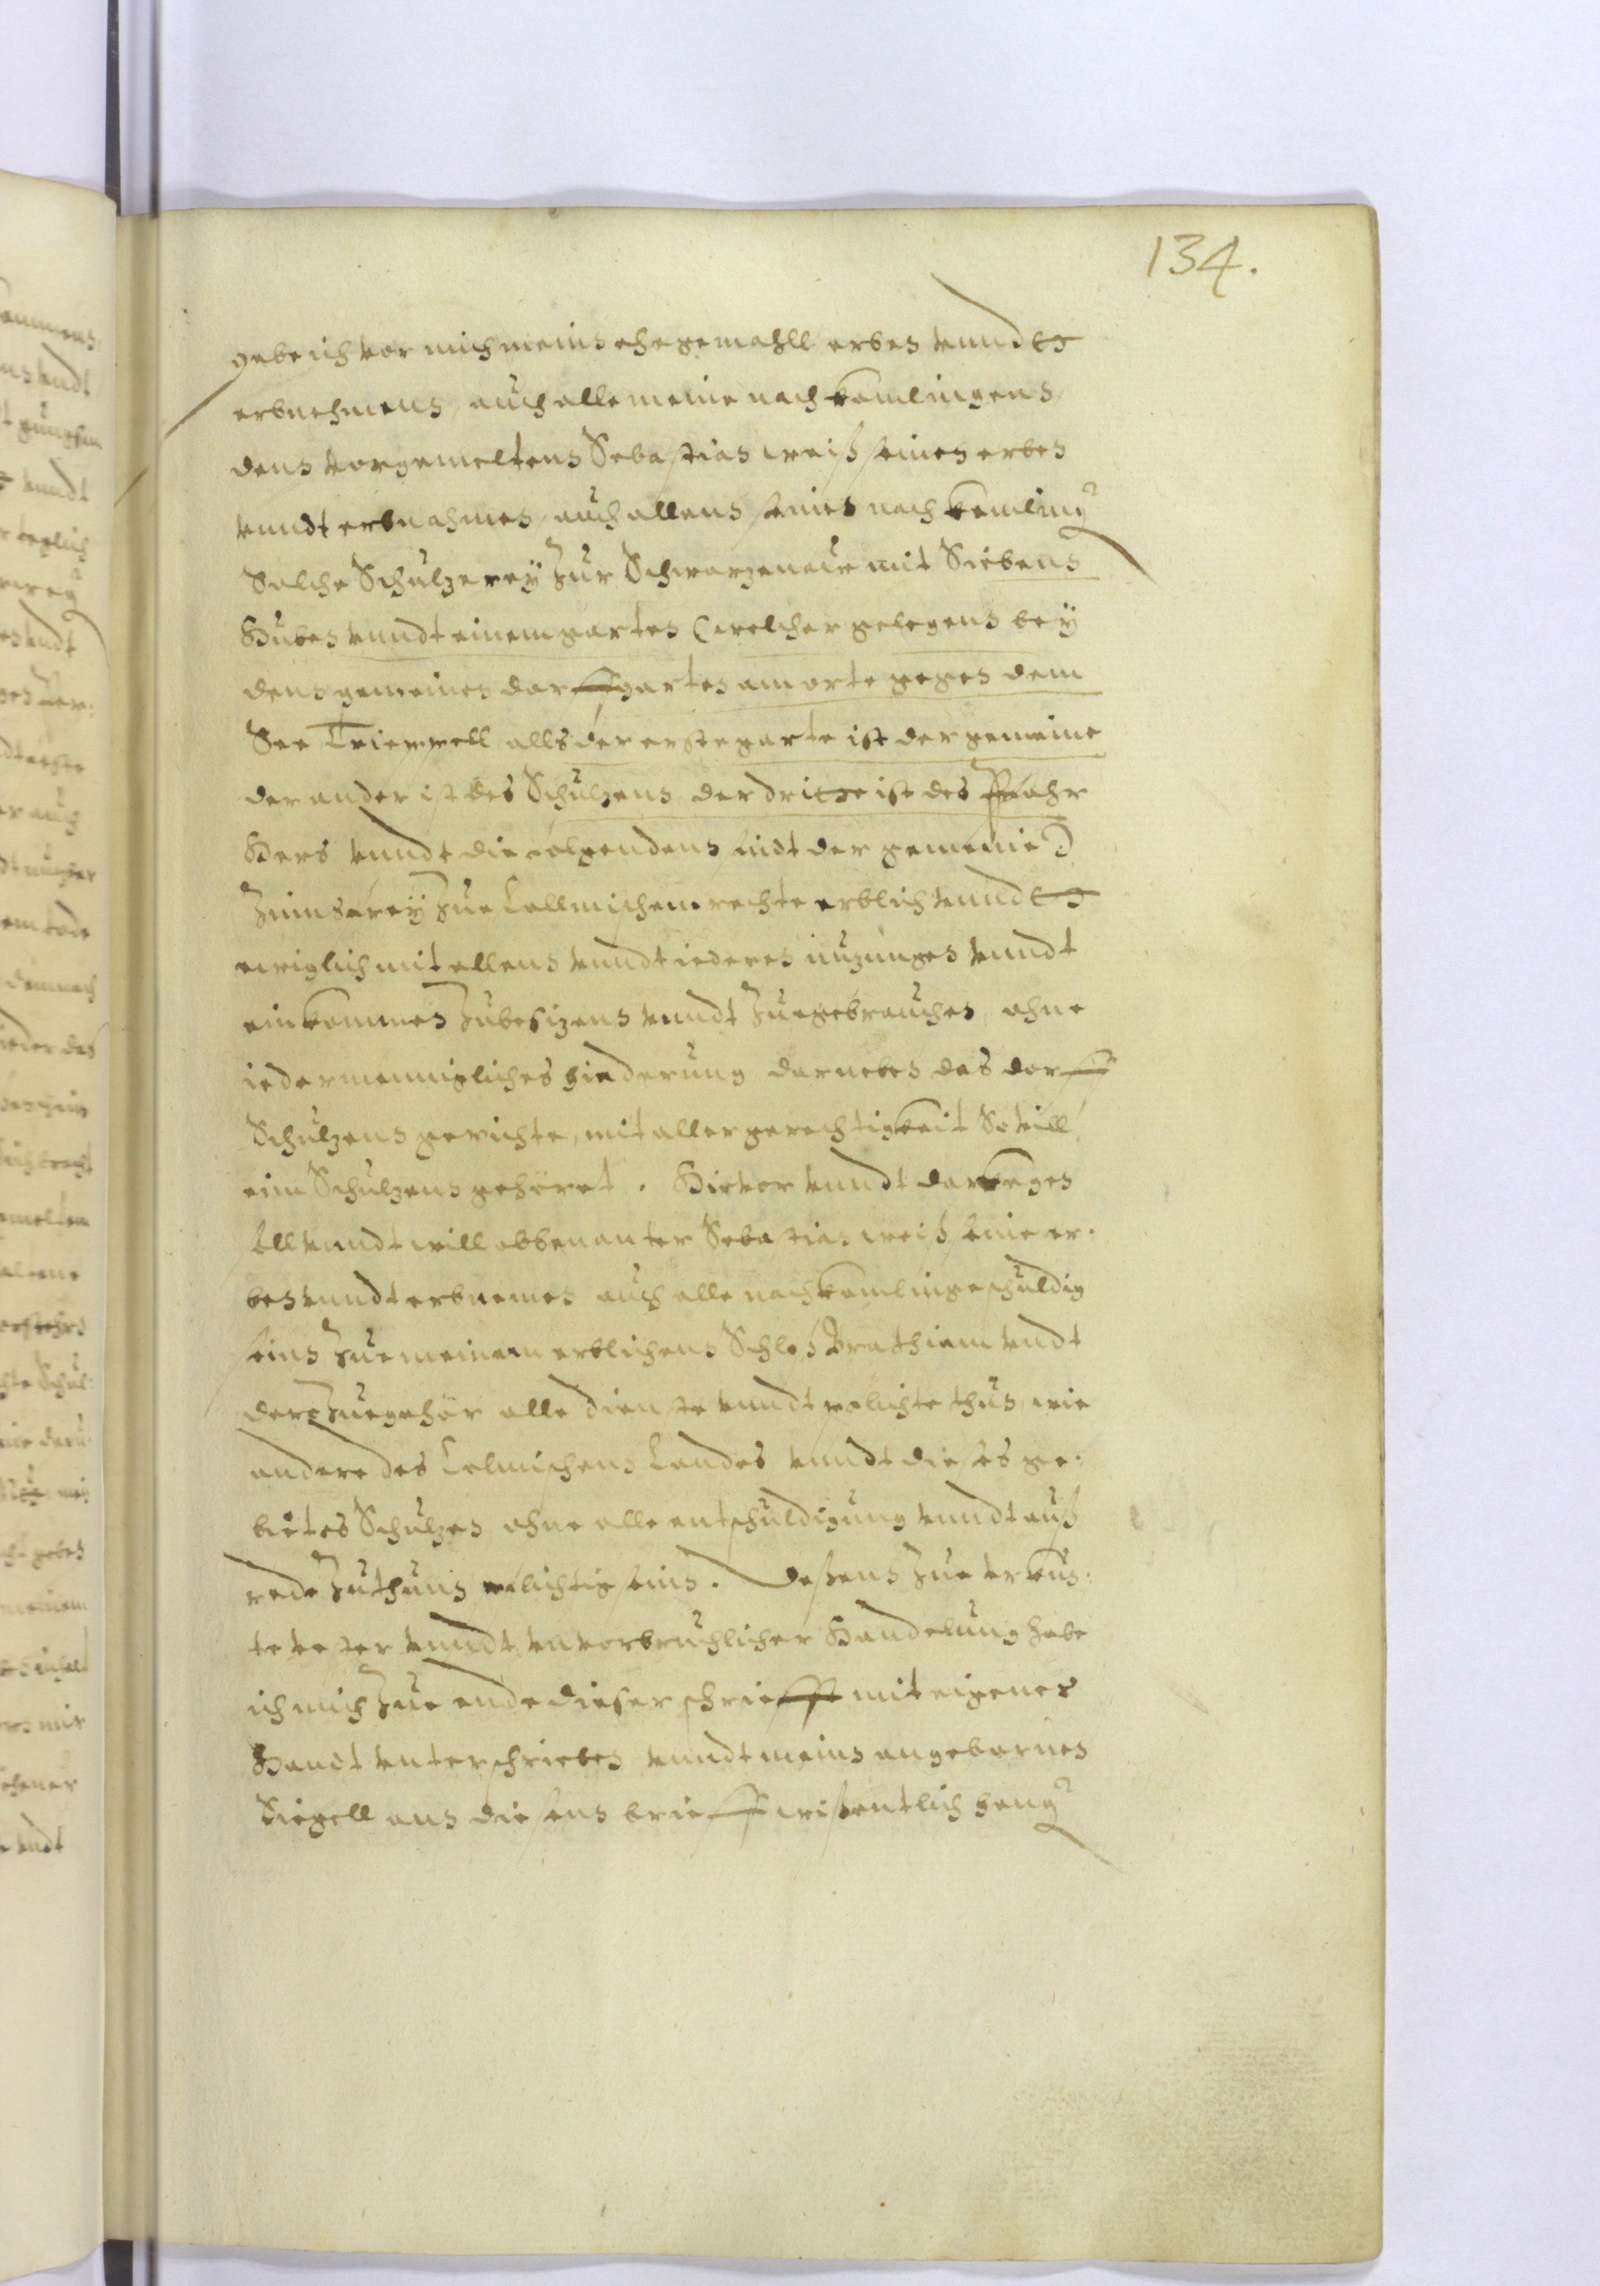 134.
gebe ich vor mich mein ehegemahll erben vnndt
erbnehmen, auch alle meine nachkomlingen
den vorgemelten Sebastian weiß seinen erben
vnndt erbnahmen, auch allen seinen nachkemling
Solche Schulzerey zur Schwarzenaue mit Sieben
Huben vnndt einem garten (welcher gelegen bey
den gemeinen dorffgarten am orte gegen dem
See alls der erste garte ist der gemeine
der ander ist des Schulzen der dritte ist des Pfahr
Hern vnndt die folgenden sindt der gemeine)
Zinnsfrey zue Collmischem rechte erblich vnndt
ewiglich mit allen vnndt iederen nuzungen vnndt
einkommen zubesizen vnndt zuegebrauchen, ohne
iedermenniglichs hinderung darneben das dorff
Schulzen gerichte, mit aller gerechtigkeit So viell
eim Schulzen gehöret. Hievor vnndt darkegen
sell vnndt will obbenanter Sebastian weiß seine er-
ben vnndt erbnemen auch alle nachkomlinge schuldig
sein zue meinem erblichen Schlos Brathian vndt
der zuegehör alle dienste vnndt pflichte thun, wie
andere des Colmischen Landes vnndt dieses ge-
bietes Schulzen ohne alle entschuldigung vnndt auß
rede zuthun pflichtig sein. Dessen zue Vrkun-
te vester vnndt vnvorbruchlicher Handelung habe
ich mich zue ende dieser schriefft mit eigener
Handt vnterschrieben vnndt mein angebornen
Siegell an diesen brieff wissentlich heng